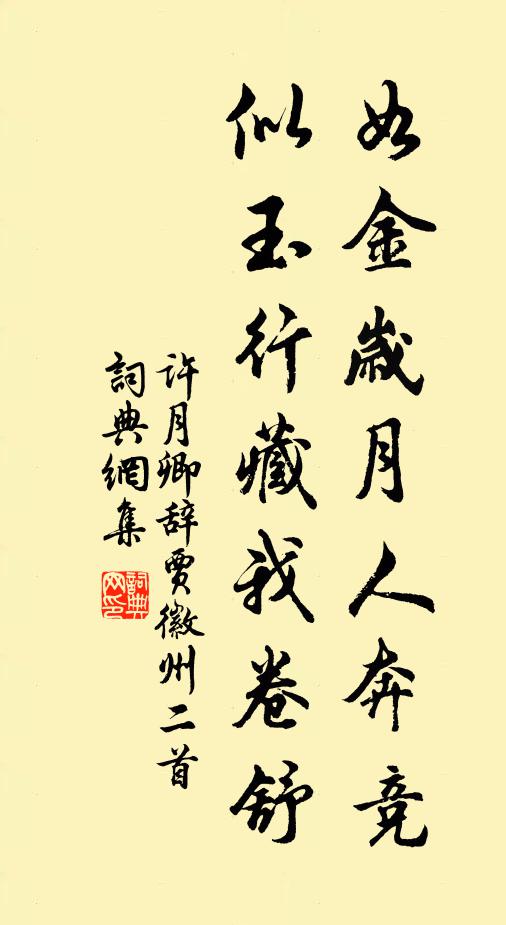 如金歲月人奔競
似玉行藏我卷舒
許月卿辭賈徽州二首
詞典網集
詞典网印